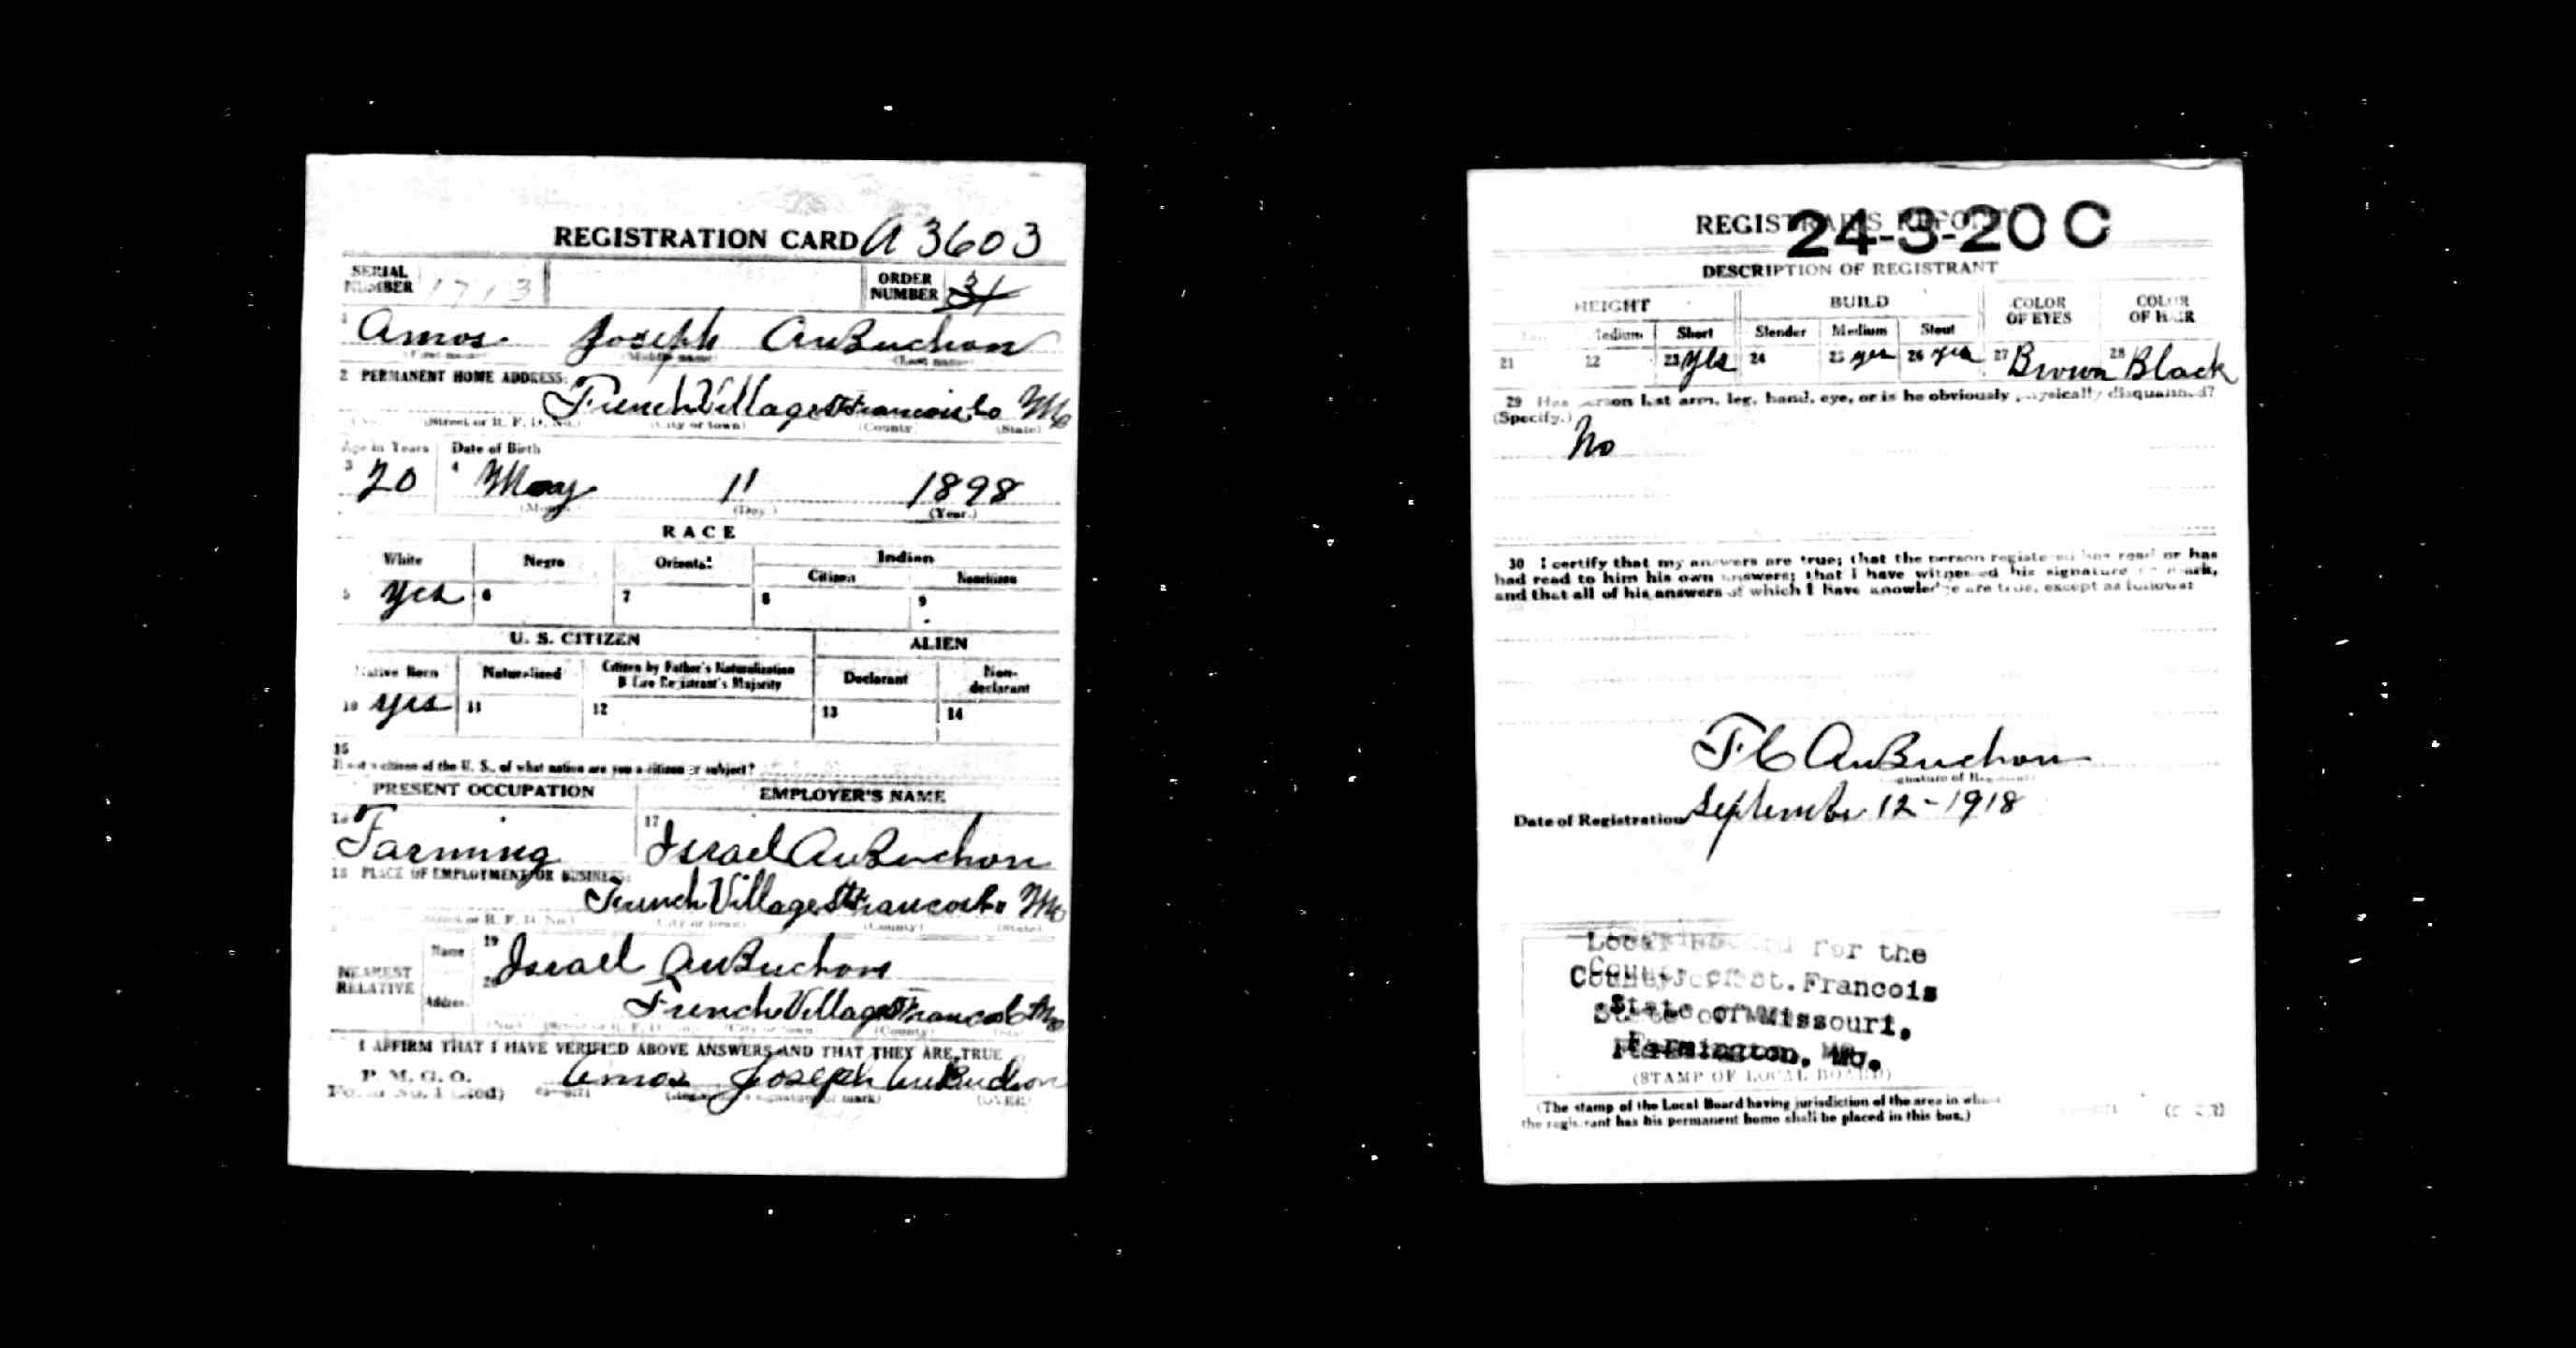 REGISTRATION CARD A 3603
SERIAL NUMBER 1713 ORDER NUMBER 31
1 Amos Joseph AuBuchon
(First name) (Middle name) (Last name)
2 PERMANENT HOME ADDRESS:
French Village St Francois Co Mo
(No.) (Street or R. F. D. No.) (City or town) (County) (State)
Age in Years Date of Birth
3 20 4 May 11 1898
(Month.) (Day.) (Year.)
RACE
White Negro Oriental Indian
Citizen Noncitizen
5 yes 6 7 8 9
U. S. CITIZEN ALIEN
Native Born Naturalized Citizen by Father's Naturalization Before Registrant's Majority Declarant Non-declarant
10 yes 11 12 13 14
15
If not a citizen of the U. S., of what nation are you a citizen or subject?
PRESENT OCCUPATION EMPLOYER'S NAME
16 Farming 17 Israel AuBuchon
18 PLACE OF EMPLOYMENT OR BUSINESS:
French Village St Francois Co Mo
(No.) (Street or R. F. D. No.) (City or town) (County) (State)
NEAREST RELATIVE
Name 19 Israel AuBuchon
Address 20 French Village St Francois Co Mo
(No.) (Street or R. F. D. No.) (City or town) (County) (State)
I AFFIRM THAT I HAVE VERIFIED ABOVE ANSWERS AND THAT THEY ARE TRUE
P. M. G. O.
Form No. 1 (Red) Amos Joseph AuBuchon
(Registrant's signature or mark) (OVER)
REGISTRAR'S REPORT
24-3-20 C
DESCRIPTION OF REGISTRANT
HEIGHT BUILD COLOR OF EYES COLOR OF HAIR
Tall Medium Short Slender Medium Stout
21 22 23 yes 24 25 yes 26 yes 27 Brown 28 Black
29 Has person lost arm, leg, hand, eye, or is he obviously physically disqualified?
(Specify.)
No
30 I certify that my answers are true; that the person registered has read or has
had read to him his own answers; that I have witnessed his signature or mark,
and that all of his answers of which I have knowledge are true, except as follows:
F C AuBuchon
(Signature of Registrar)
Date of Registration September 12-1918
Local Board for the
County of St. Francois
State of Missouri,
Farmington, Mo.
(STAMP OF LOCAL BOARD)
(The stamp of the Local Board having jurisdiction of the area in which
the registrant has his permanent home shall be placed in this box.)
(OVER)